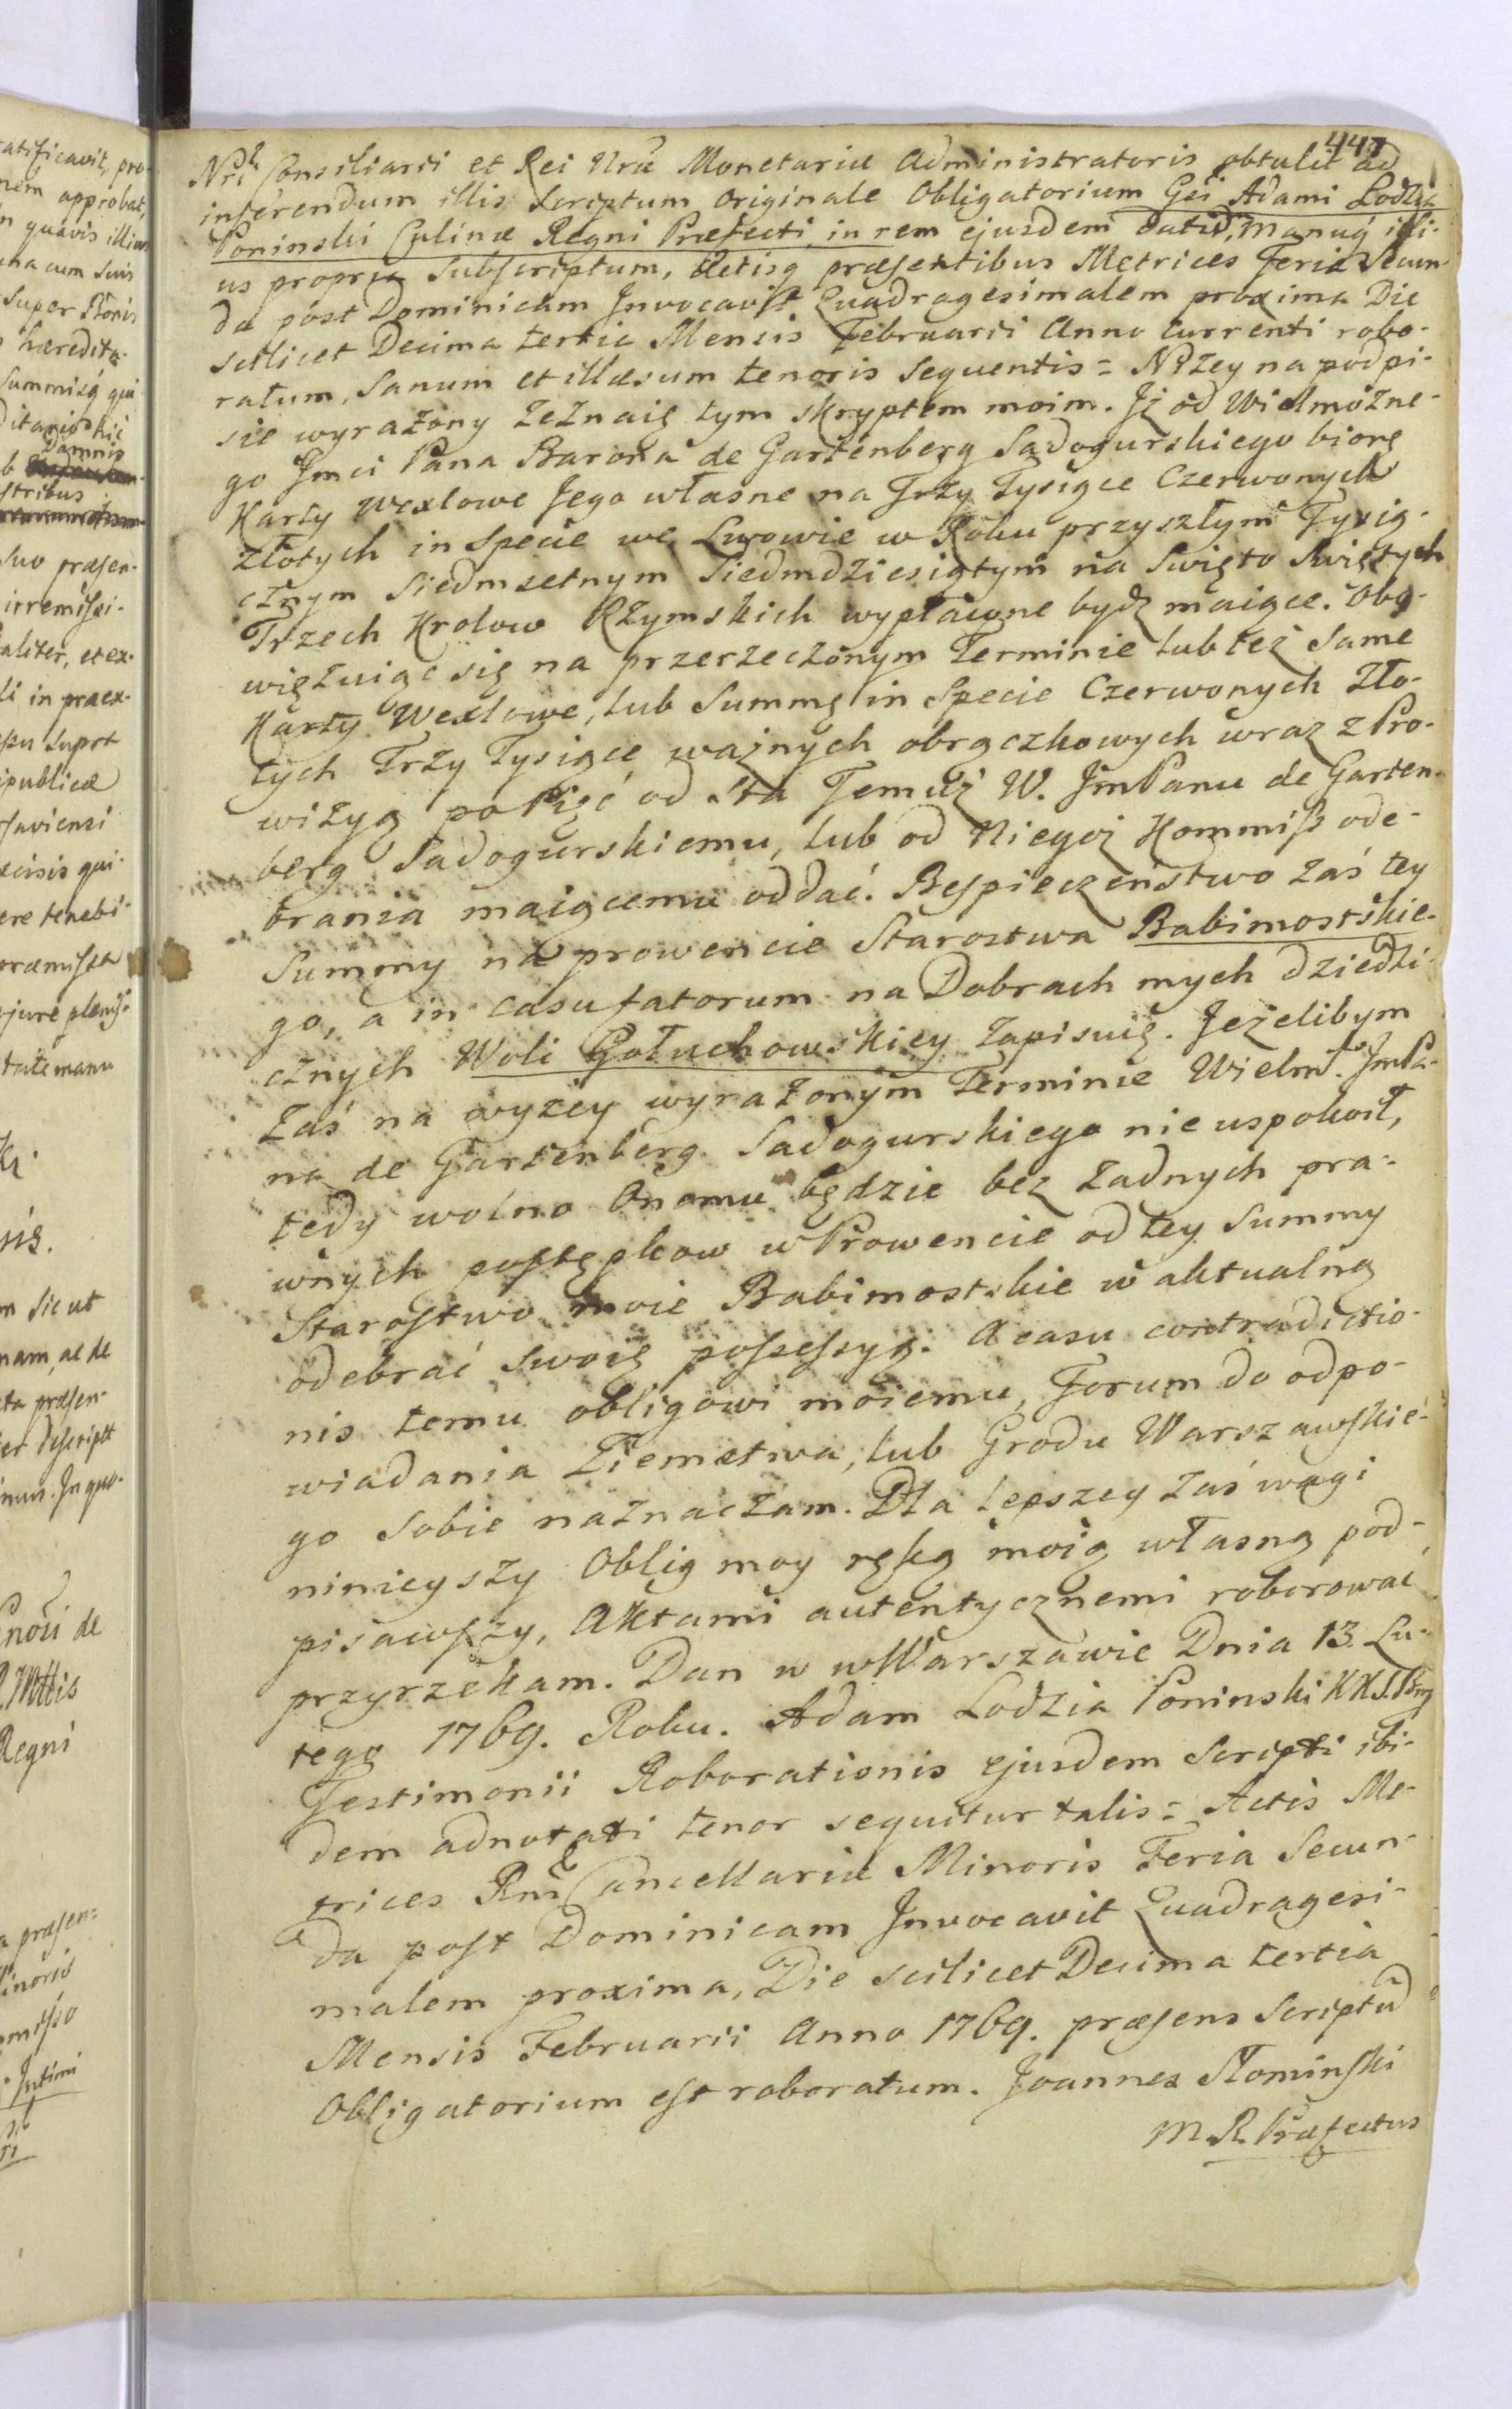 447
Nri Consiliarii et Rei Nræ Monetariæ Administratoris obtulit ad
inferendum illis Scriptum Originale Obligatorium Gsi Adami Lodzia
Poninski Culinæ Regni Præfecti, in rem ejusdem datū, Manuq illi-
us propria Subscriptum, Actisq præsentibus Metrices Feria Secun-
da post Dominicam Invocavit Quadragesimalem proxima Die
scilicet Decima tertia Mensis Februarii Anno Currenti robo-
ratum, Sanum et illæsum tenoris sequentis = Niżey na podpi-
sie wyrażony Zeznaię tym Skryptem moim. Iż od Wielmożne-
go Jmci Pana Barona de Gartenberg Sadogurskiego biorę
Karty Wexlowe Jego własne na Trzy Tysiące Czerwonych
Złotych in Specie we Lwowie w Roku przyszłym Tysią-
cznym Siedmsetnym Siedmdziesiątym na Swięto Swiętych
Trzech Krolow Rzymskich wypłacone bydź maiące. Obo-
więzuiąc się na przerzeczonym Terminie lub też Same
Karty Wexlowe, lub Summę in Specie Czerwonych Zło-
tych Trzy Tysiące ważnych obrączkowych wraz z Pro-
wizyą po Pięć od Sta Temuż W. JmPanu de Garten-
berg Sadogurskiemu, lub od Niegoż Kommiss ode-
brania maiącemu oddać. Bespieczenstwo zaś tey
Summy na prowencie Starostwa Babimostskie-
go, a in casu fatorum na Dobrach mych dziedzi-
cznych Woli Gołuchowskiey Zapisuię. Jeżelibym
Zaś na wyżey wyrażonym Terminie Wielmo JmPa-
na de Gartenberg Sadogurskiego nie uspokoił,
tedy wolno Onemu będzie bez żadnych pra-
wnych postępkow w Prowencie od tey Summy
Starostwo moie Babimostskie w aktualną
odebrać swoię possessyą. A casu contradictio-
nis temu obligowi moiemu, Forum do odpo-
wiadania Ziemstwa, lub Grodu Warszawskie-
go Sobie naznaczam. Dla lepszey zaś wagi
ninieyszy Oblig moy ręką moią własną pod-
pisawszy, Aktami autentycznemi roborować
przyrzekam. Dan w wWarszawie Dnia 13. Lu-
tego 1769. Roku. Adam Lodzia Poninski KK
Testimonii Roborationis ejusdem Scripti ibi-
dem adnotati tenor sequitur talis = Actis Me-
trices Rni Cancellariæ Minoris Feria Secun-
da post Dominicam Invocavit Quadragesi-
malem proxima, Die scilicet Decima tertia
Mensis Februarii Anno 1769. præsens Scriptū
Obligatorium est roboratum. Joannes Słominski
M. R. Præfectus